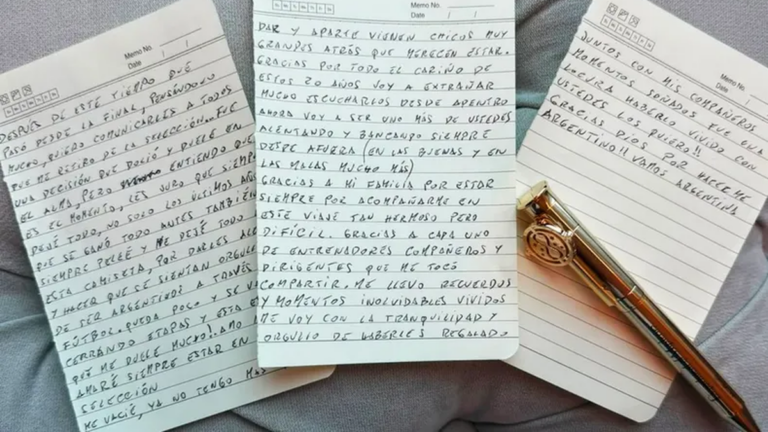 Memo No.
Date / /
DESPUÉS DE ESTE TIEMPO QUE
PASÓ DESDE LA FINAL, PENSÁNDOLO
MUCHO, QUIERO COMUNICARLES A TODOS
QUE ME RETIRO DE LA SELECCIÓN. FUE
UNA DECISIÓN QUE DOLIÓ Y DUELE EN
EL ALMA, PERO ENTIENDO QUE
ES EL MOMENTO, LES JURO QUE SIEMPRE
DEJÉ TODO, NO SOLO LOS ÚLTIMOS AÑOS
QUE SE GANÓ TODO ANTES TAMBIÉN
SIEMPRE PELEÉ Y ME DEJÉ TODO
ESTA CAMISETA, POR DARLES
Y HACER QUE SE SIENTAN
DE SER ARGENTINOS A TRAVÉS
FÚTBOL. QUEDA POCO Y SE
CERRANDO ETAPAS Y ESTA
QUE ME DUELE MUCHO!. AMO
AMARÉ SIEMPRE ESTAR EN
SELECCIÓN
ME VACIÉ, YA NO TENGO MÁS
Memo No.
Date / /
DAR Y APARTE VIENEN CHICOS MUY
GRANDES ATRÁS QUE MERECEN ESTAR.
GRACIAS POR TODO EL CARIÑO DE
ESTOS 20 AÑOS VOY A EXTRAÑAR
MUCHO ESCUCHARLOS DESDE ADENTRO
AHORA VOY A SER UNO MÁS DE USTEDES
ALENTANDO Y BANCANDO SIEMPRE
DESDE AFUERA (EN LAS BUENAS Y EN
LAS MALAS MUCHO MÁS)
GRACIAS A MI FAMILIA POR ESTAR
SIEMPRE POR ACOMPAÑARME EN
ESTE VIAJE TAN HERMOSO PERO
DIFÍCIL. GRACIAS A CADA UNO
DE ENTRENADORES COMPAÑEROS Y
DIRIGENTES QUE ME TOCÓ
COMPARTIR. ME LLEVO RECUERDOS
Y MOMENTOS INOLVIDABLES VIVIDOS
ME VOY CON LA TRANQUILIDAD Y
ORGULLO DE HABERLES REGALADO
Memo No.
Date / /
JUNTOS CON MIS COMPAÑEROS
MOMENTOS SOÑADOS FUE UNA
LOCURA HABERLO VIVIDO CON
USTEDES LOS QUIERO!!
GRACIAS DIOS POR HACERME
ARGENTINO!! VAMOS ARGENTINA